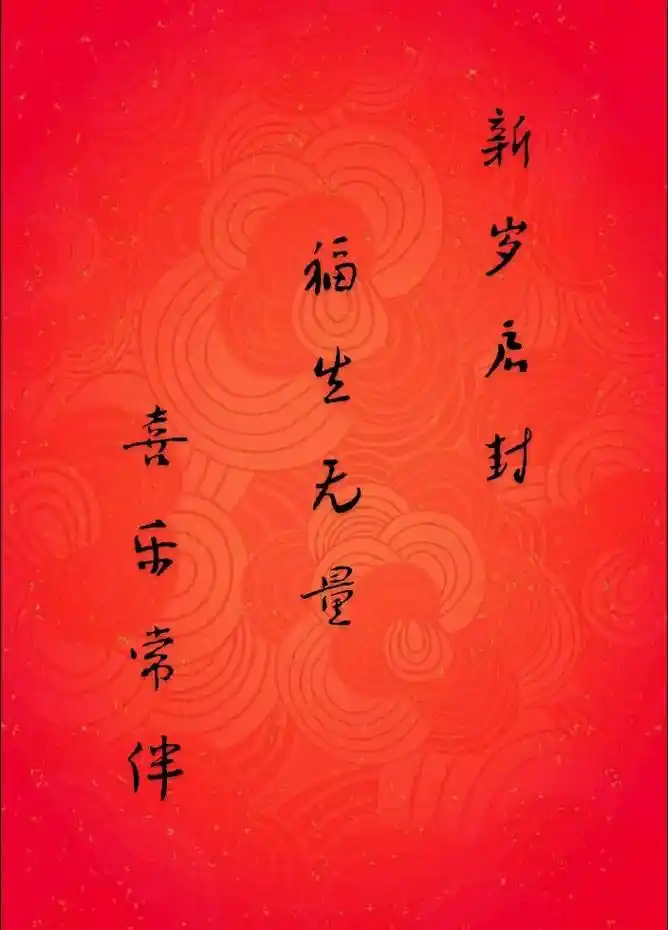 新岁启封
福生无量
喜乐常伴